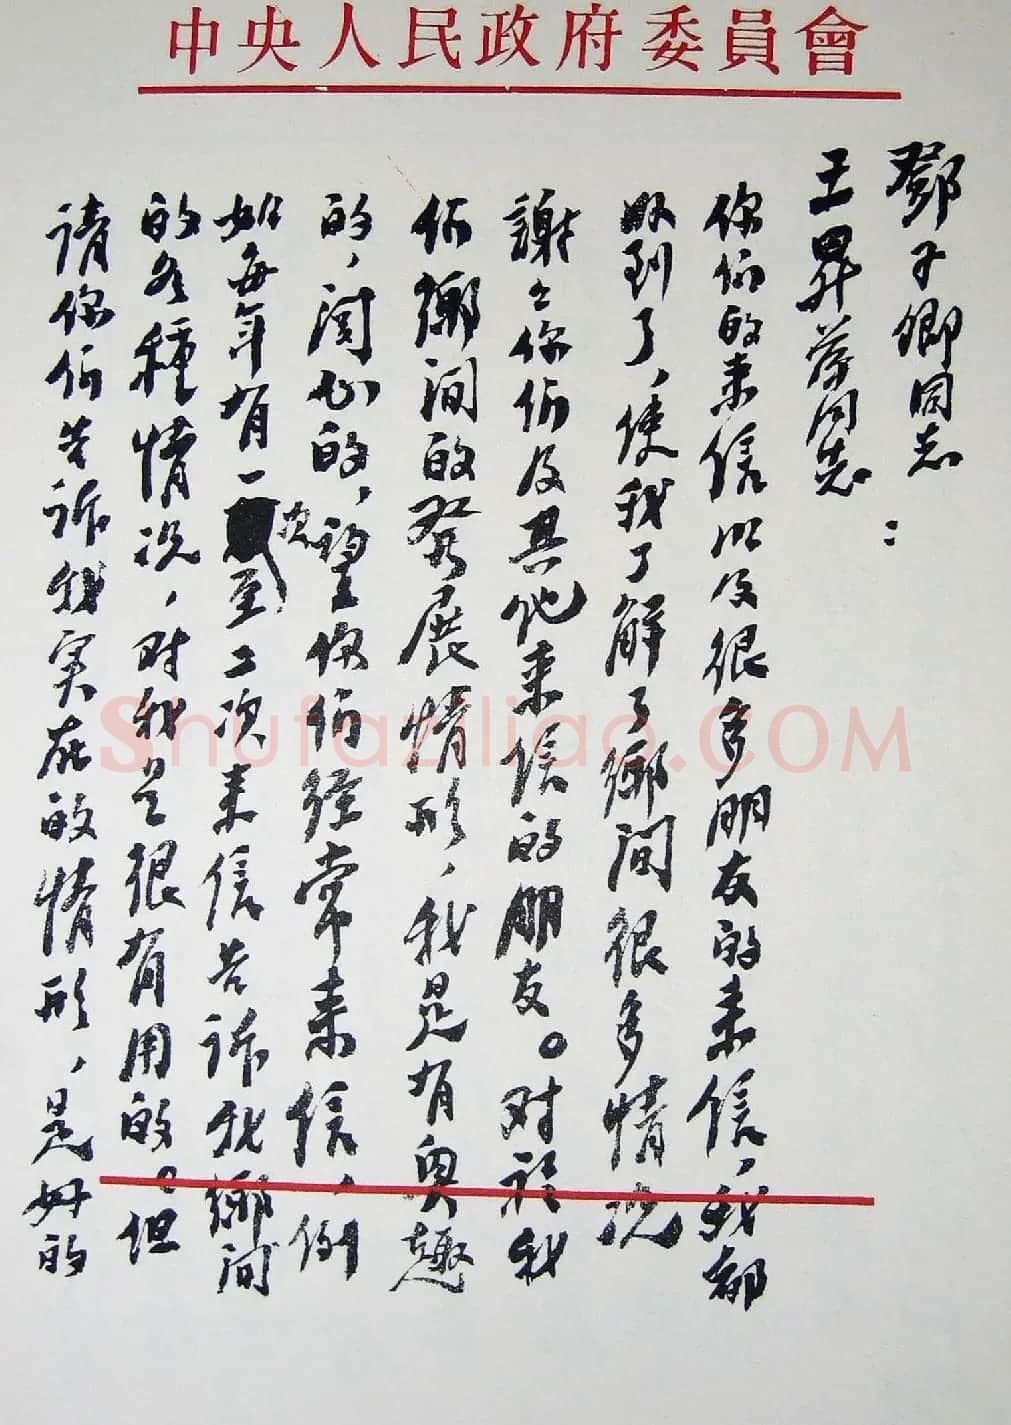 中央人民政府委員會
鄧子卿同志
王昇荣同志：
你們的来信以及很多朋友的来信，我都
收到了，使我了解了鄉間很多情况
謝々你們及其他来信的朋友。对於我
們鄉間的發展情形，我是有興趣
的，関心的，望你們经常来信，例
如每年有一次至二次来信告訴我鄉间
的各種情况，对我是很有用的。但
請你們告訴我实在的情形，是好的
Shufaziliao.COM